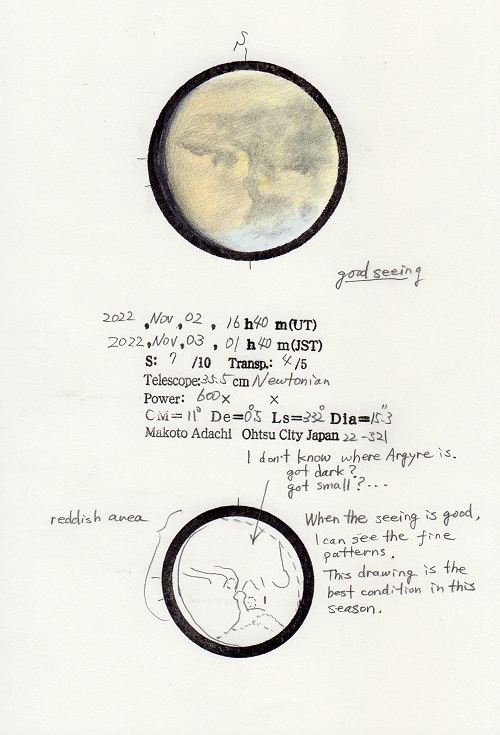 S
good seeing
2022, Nov, 02, 16 h 40 m(UT)
2022, Nov, 03, 01 h 40 m(JST)
S: 7 /10 Transp.: 4 /5
Telescope: 35.5 cm Newtonian
Power: 600 × ×
CM= 11° De= 0.5° Ls= 332° Dia= 15.3"
Makoto Adachi Ohtsu City Japan 22-321
I don't know where Argyre is.
got dark?
got small?...
reddish area
When the seeing is good,
I can see the fine
patterns.
This drawing is the
best condition in this
season.